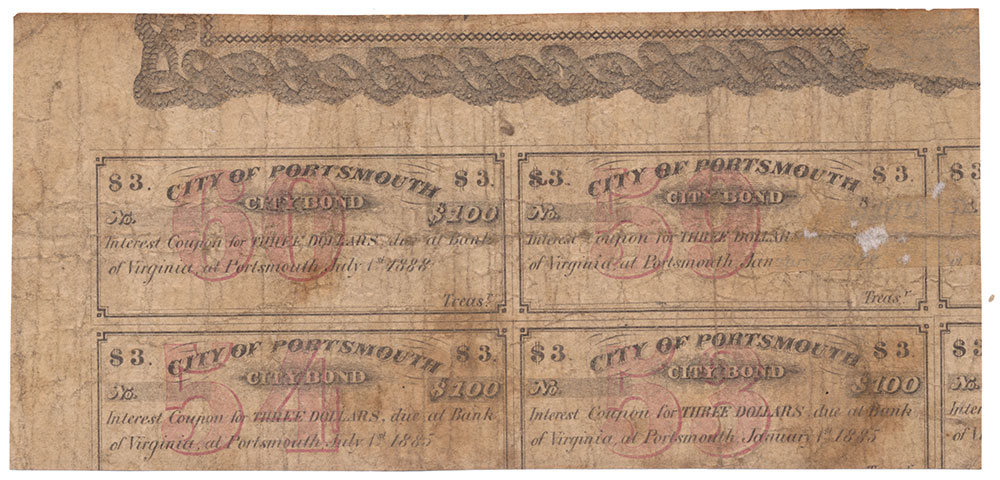 $ 3. CITY OF PORTSMOUTH $ 3.
60
CITY BOND
No. $100
Interest Coupon for THREE DOLLARS, due at Bank
of Virginia, at Portsmouth July 1st 1888.
Treasr.
$ 3. CITY OF PORTSMOUTH $ 3.
59
CITY BOND
No.
Interest Coupon for THREE DOLLARS
of Virginia, at Portsmouth Jan
Treasr.
$ 3.
$ 3. CITY OF PORTSMOUTH $ 3.
54
CITY BOND
No. $100
Interest Coupon for THREE DOLLARS, due at Bank
of Virginia, at Portsmouth July 1st 1885
$ 3. CITY OF PORTSMOUTH $ 3.
53
CITY BOND
No. $100
Interest Coupon for THREE DOLLARS, due at Bank
of Virginia, at Portsmouth January 1st 1885
$ 3
No.